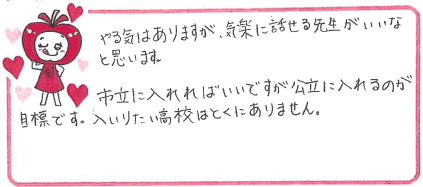 やる気はありますが、気楽に話せる先生がいいな
と思います。
市立に入れればいいですが公立に入れるのが
目標です。入いりたい高校はとくにありません。